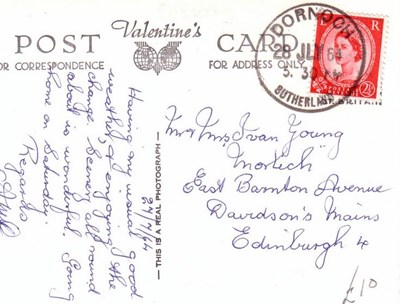 POST
Valentine's
CARD
FOR CORRESPONDENCE
FOR ADDRESS ONLY
DORNOCH
28 JLY 64
5.30 PM
SUTHERLAND
R
2½
24/7/64
Having our usual good
weather & enjoying the
change. Scenery all round
about is wonderful. Going
home on Saturday.
Regards
— THIS IS A REAL PHOTOGRAPH —
Mr & Mrs Ivan Young
East Barnton Avenue
Davidson's Mains
Edinburgh 4
£10